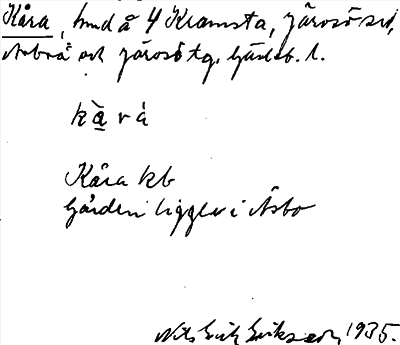 Kåra, hmd å 4 Kramsta, Järvsö sn,
och Järvsö tg. Gävleb. l.
kàrá
Kåra kb
Gården ligger i Åsbo
Nils Erik Eriksson, 1935.